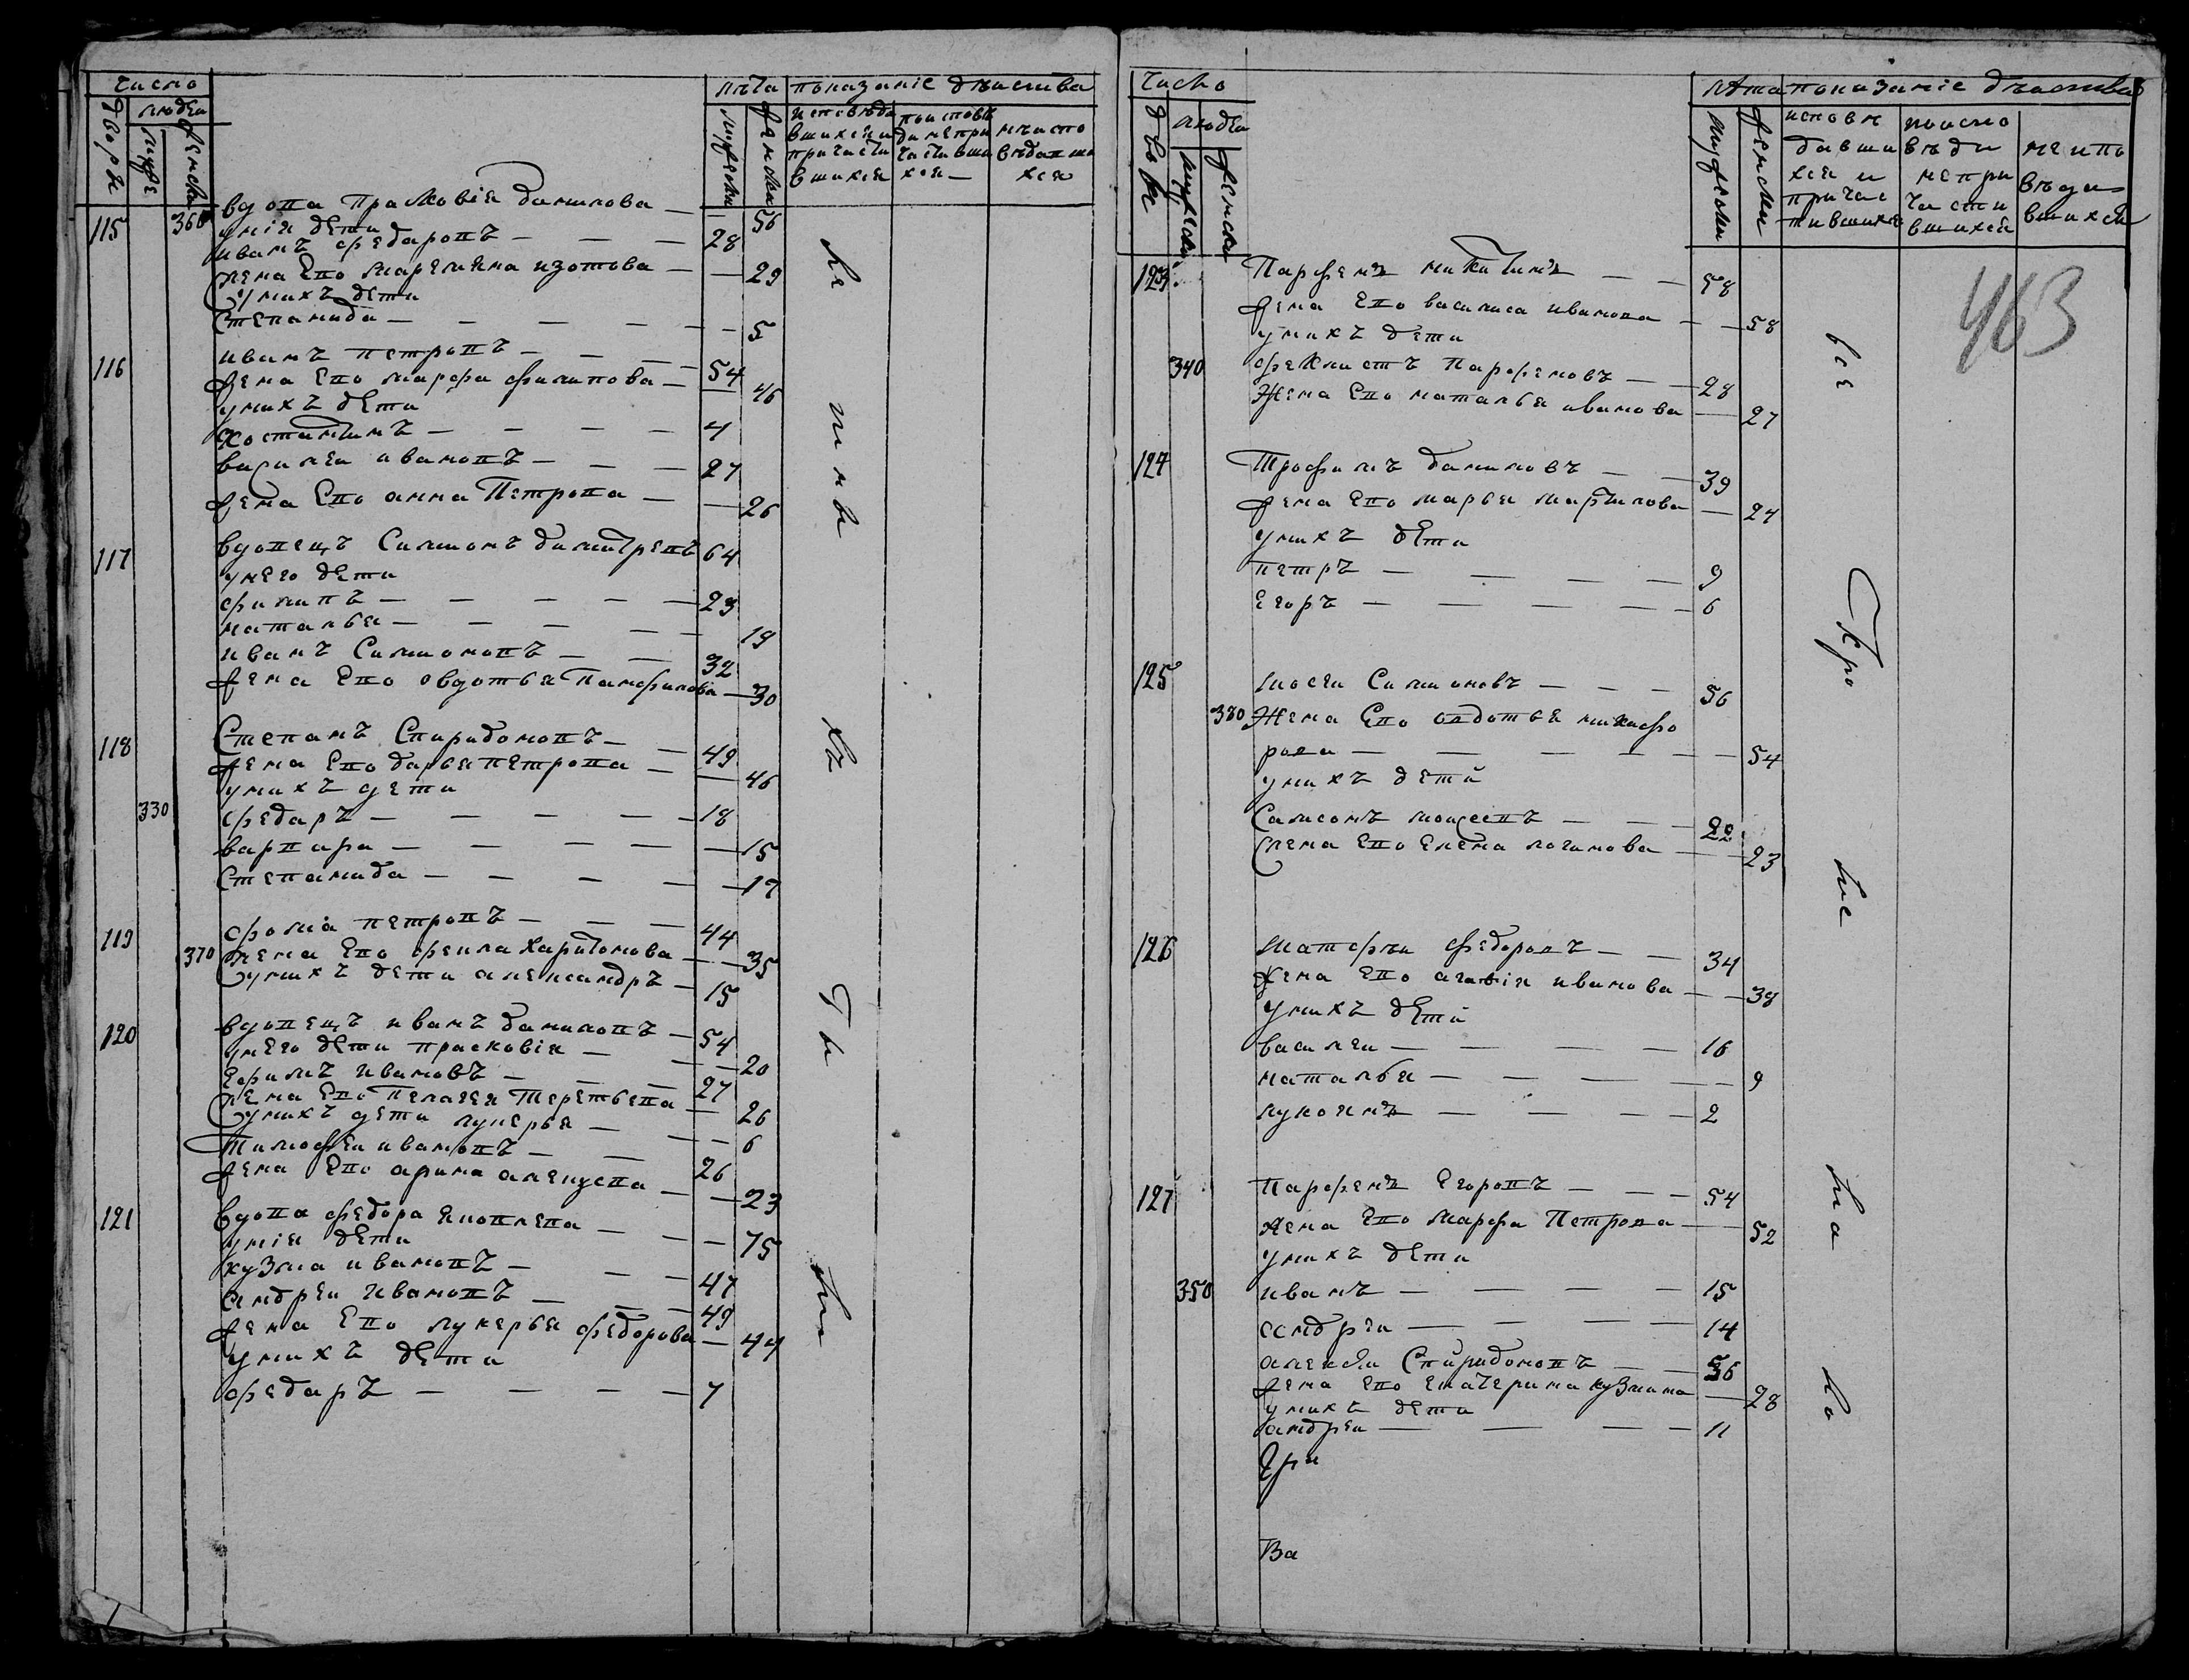 число
людеи
дворы
муже
женска
лѣта
показанiе дѣиства
мужески
женски
исповѣда
вшихся и
причасти
вшихся
поисповѣ
ди непри
частивши
хся
неиспо
вѣдавши
хся
вдова Прасковiя данилова — 56
115 360 унiя дети
иванъ федаровъ — 28
жена Ево маремяна изотова — 29
унихъ дети
Степанида — 5
116 иванъ петровъ — 54
жена Ево марфа филипова — 46
унихъ дети
костянтинъ — 4
василеи ивановъ — 27
жена Ево анна Петрова — 26
117 вдовецъ Симионъ димитревъ 64
унего дети
филипъ — 23
наталья — 19
иванъ Симионовъ — 32
жена Ево овдотья Панфилова — 30
118 Степанъ Спиридоновъ — 49
жена Ево дарья петрова — 46
унихъ дети
330 федаръ — 18
варвара — 15
Степанида — 17
119 фома петровъ — 44
370 жена Ево фекла Харитонова — 35
унихъ дети александръ — 15
120 вдовецъ иванъ даниловъ — 54
унего дети прасковiя — 20
Ефимъ ивановъ — 27
жена Ево Пелагея Терентьева — 26
унихъ дети лукерья — 6
Тимофеи ивановъ — 26
жена Ево арина алексева — 23
121 вдова федора яковлева — 75
унiя дети
кузма ивановъ — 47
андреи ивановъ — 49
жена Ево лукерья федорова — 44
унихъ дети
федаръ — 7
число
дворы
людеи
мужески
женски
лѣта
показанiе дѣиства
мужески
женски
исповѣ
давши
хся и
причас
тившихся
поиспо
вѣди
непри
части
вшихся
неиспо
вѣда
вшихся
463
123 Парфенъ никитинъ — 58
жена Ево василиса иванова — 58
унихъ дети
340 феклистъ Парфеновъ — 28
Жена Ево наталья иванова — 27
124 Трофимъ даниловъ — 39
жена Ево марья мартинова — 24
унихъ дети
петръ — 9
Егоръ — 6
125 мосеи Симионовъ — 56
380 Жена Ево овдотья никифо
рова — 54
унихъ дети
Самсонъ мосеевъ — 22
жена Ево Елена логинова — 23
126 матфеи федоровъ — 34
жена Ево агафiя иванова — 38
унихъ дети
василеи — 16
наталья — 9
лукоянъ — 2
127 Парфенъ Егоровъ — 54
жена Ево марфа Петрова — 52
унихъ дети
350 иванъ — 15
андреи — 14
алексеи Спиридоновъ — 36
жена Ево екатерина кузмина — 28
унихъ дети
андреи — 11
Гри
Ва